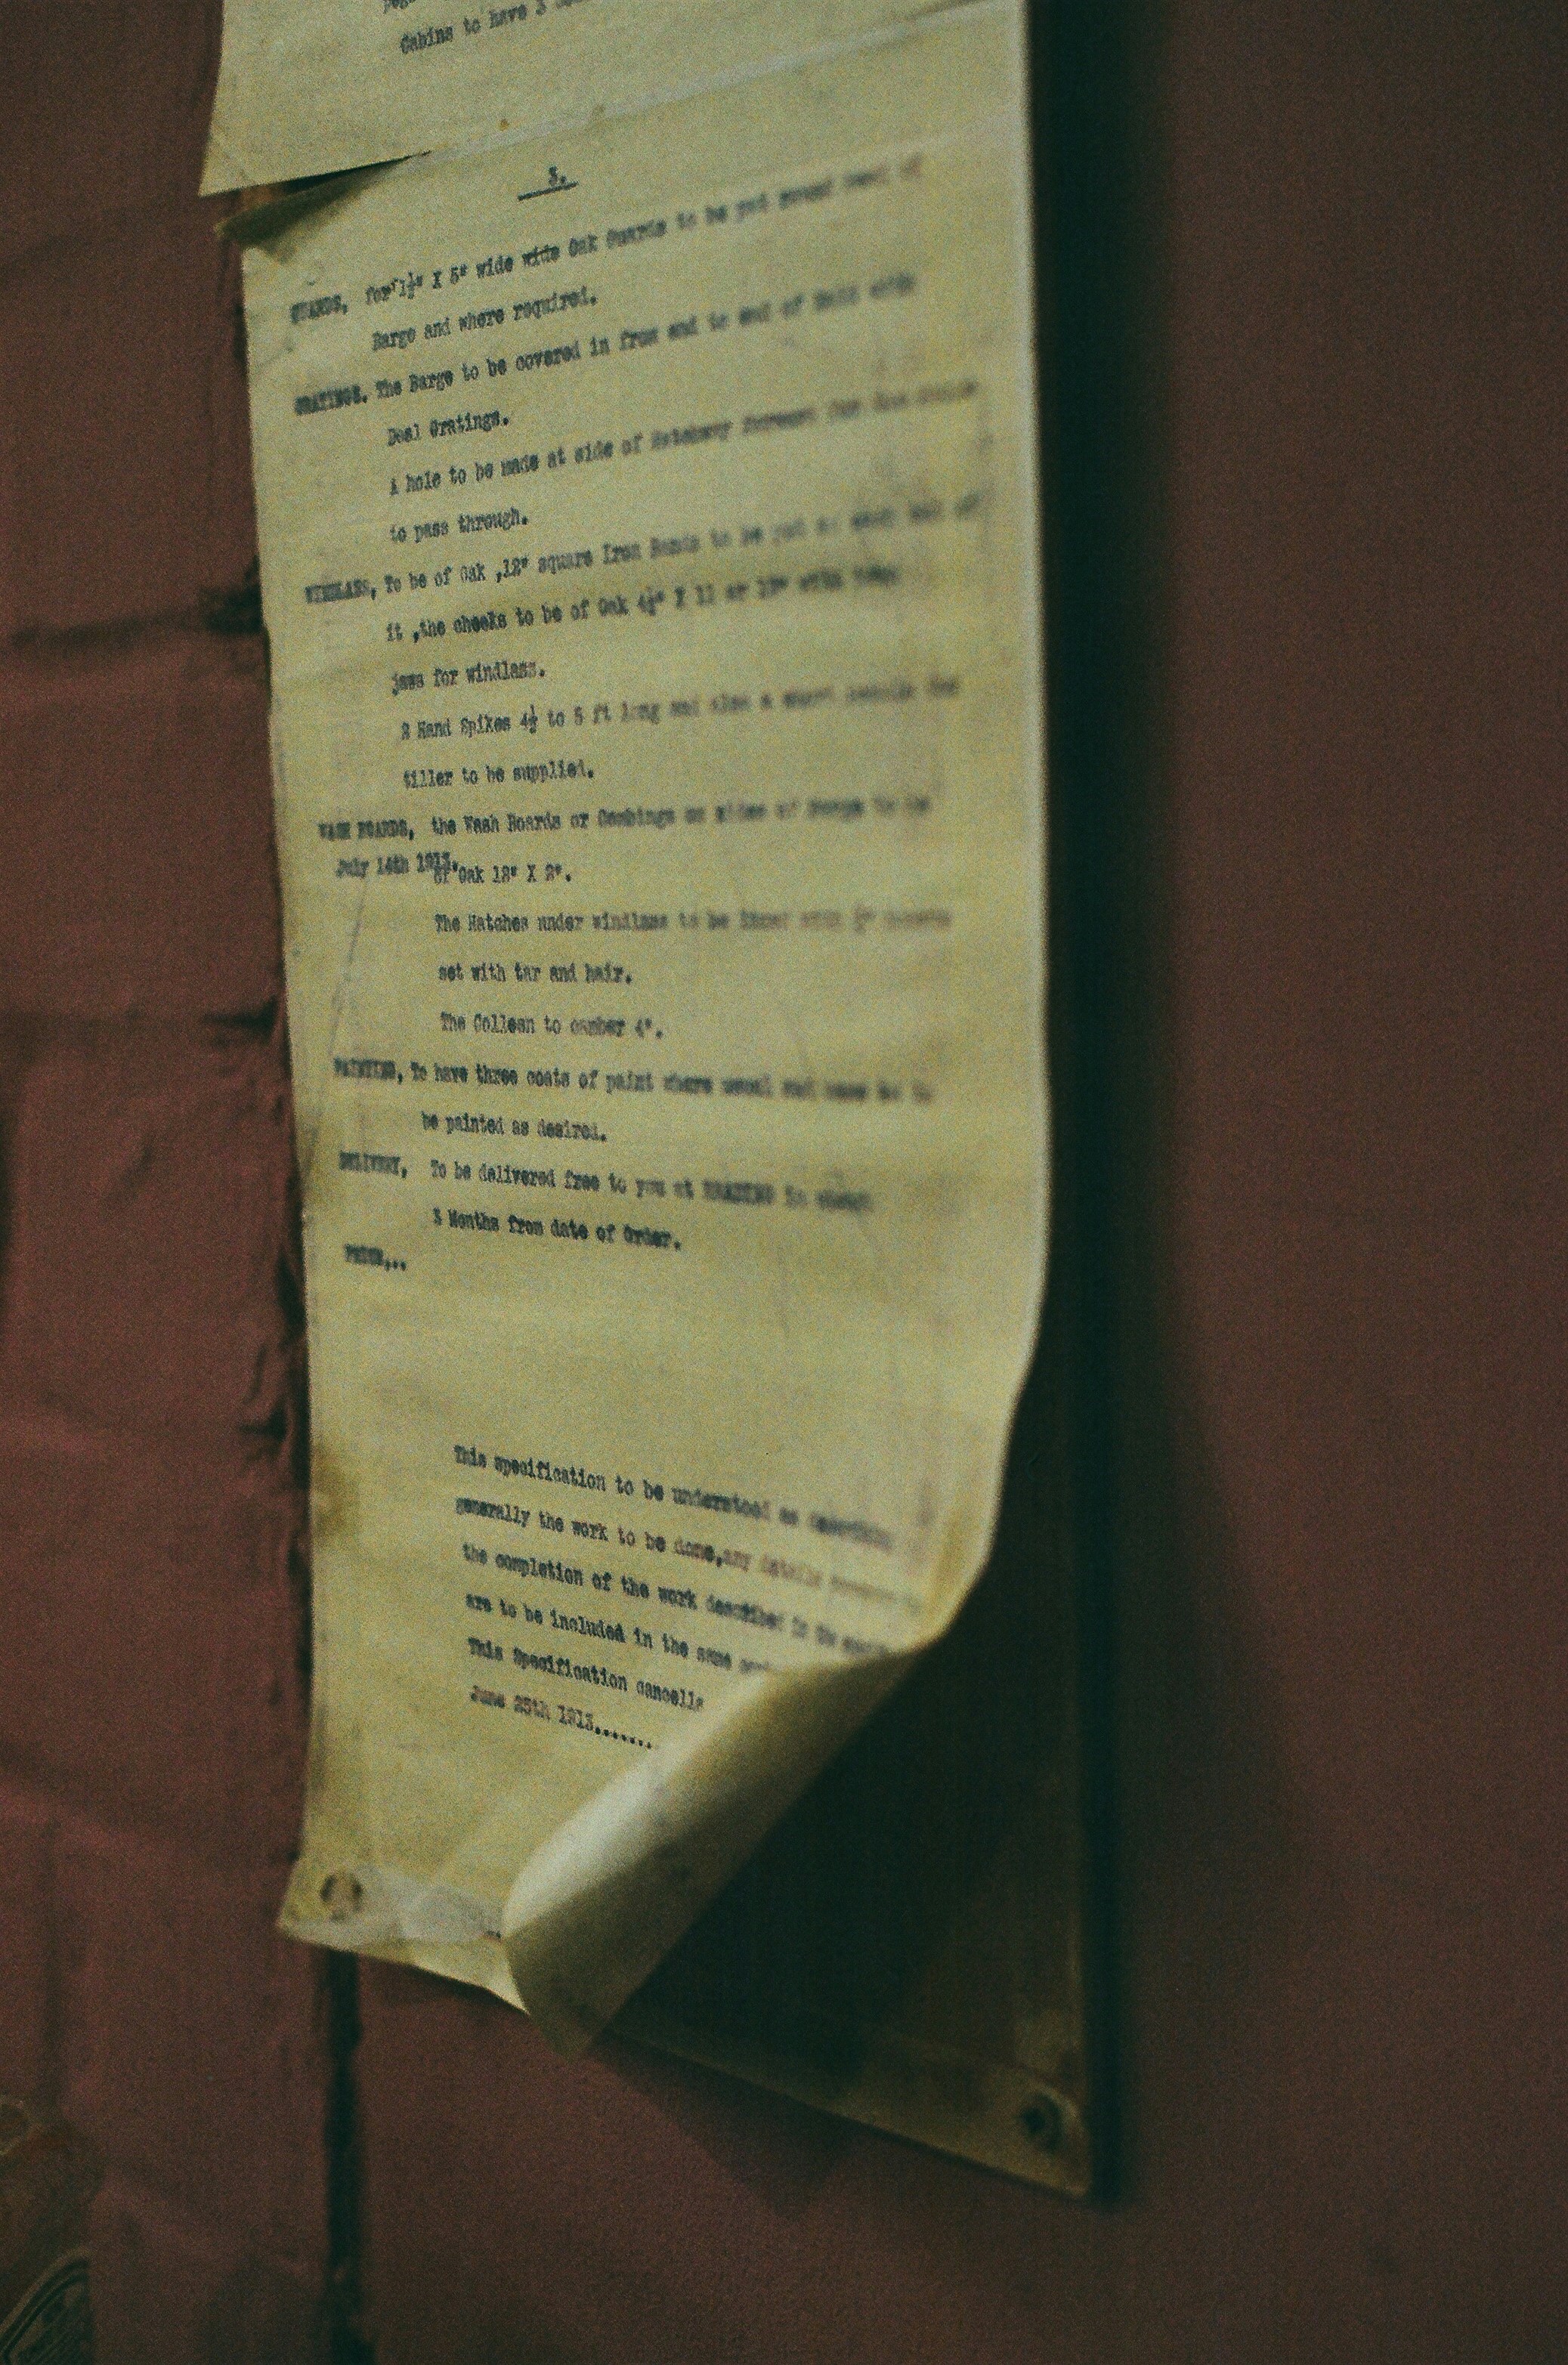 Cabins to have 3
3.
GUARDS, for 1½" X 5" wide wide Oak Guards to be put round head of
Barge and where required.
GRATINGS. The Barge to be covered in from end to end of Hold with
Deal Gratings.
A hole to be made at side of Hatchway forward for
to pass through.
WINDLASS, To be of Oak ,12" square Iron Bands to be put at each end of
it ,the cheeks to be of Oak 4½" X 11 or 12" with
jaws for windlass.
2 Hand Spikes 4½ to 5 ft long and also a short handle for
tiller to be supplied.
WASH BOARDS, the Wash Boards or Combings on sides of Barge to be
July 14th 1913.
of Oak 12" X 2".
The Hatches under windlass to be
set with tar and hair.
The Colleen to camber 4".
PAINTING, To have three coats of paint where usual and name to
be painted as desired.
DELIVERY, To be delivered free to you at READING in about
3 Months from date of Order.
PRICE,..
This specification to be understood as
generally the work to be done,any details
the completion of the work described to be
are to be included in the same
This Specification cancells
June 25th 1913.......